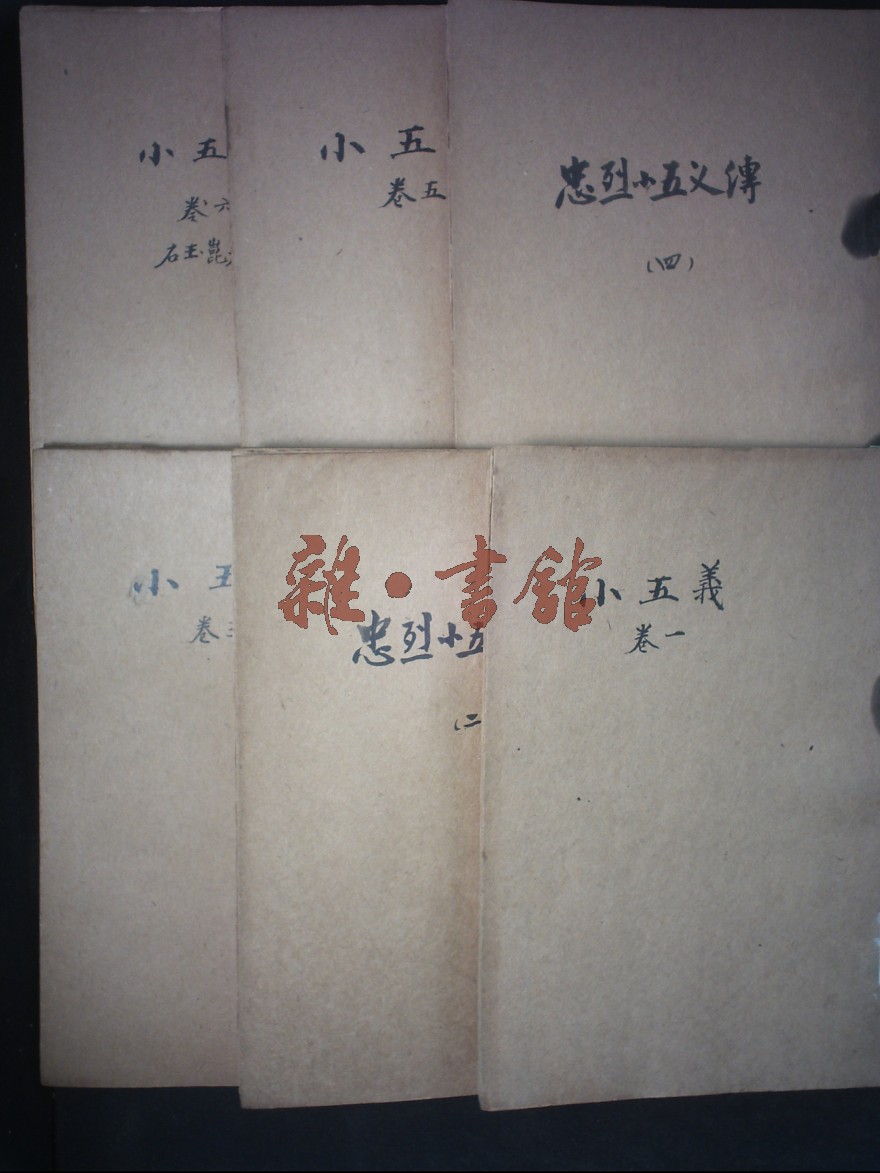 小五
卷六
石玉崑
小五
卷五
忠烈小五义傳
(四)
小五
卷三
忠烈小五
(二
小五義
卷一
雜·書館